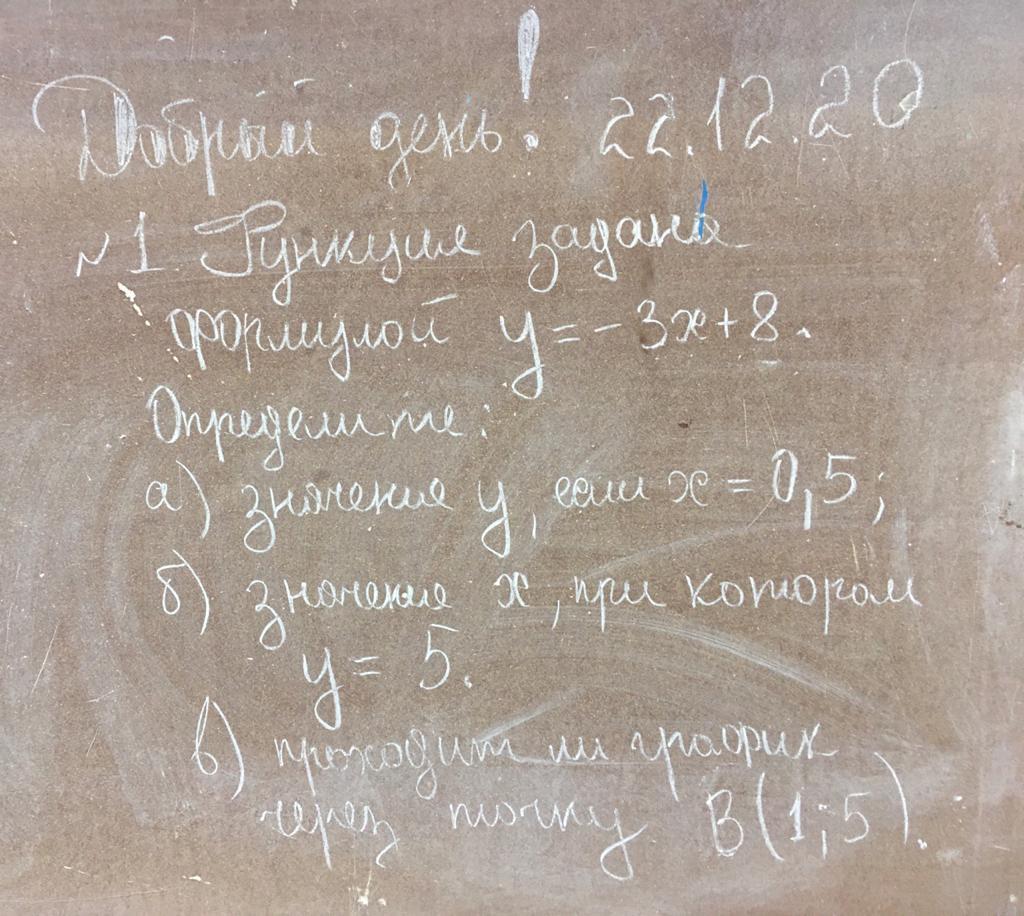 Добрый день! 22.12.20
№1 Функция задана
формулой y = -3x + 8.
Определите:
а) значение y, если x = 0,5;
б) значение x, при котором
y = 5.
в) проходит ли график
через точку B(1;5).